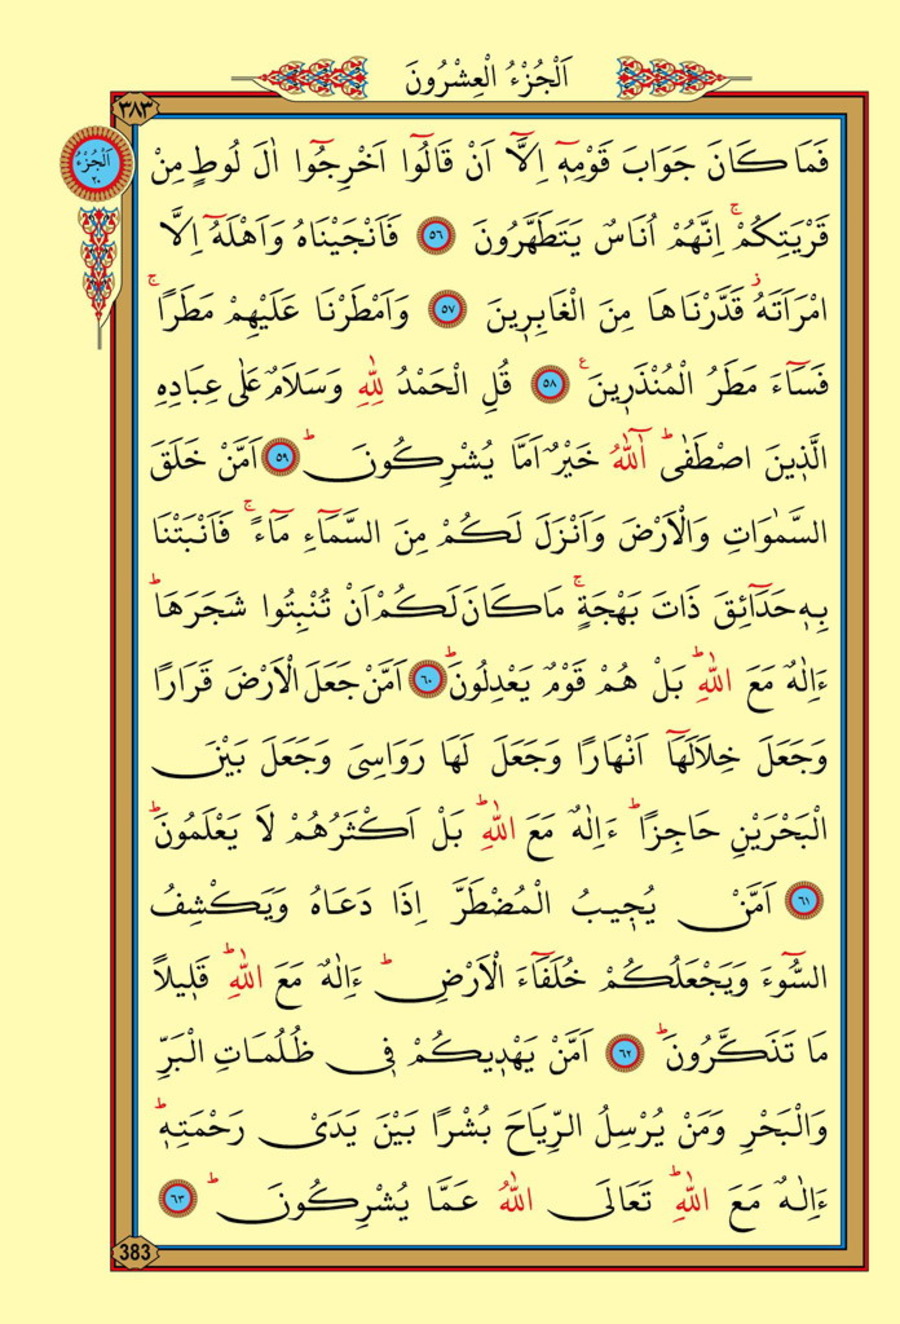 اَلْجُزْءُ الْعِشْرُونَ
٣٨٣
اَلْجُزْءُ
٢٠
فَمَا كَانَ جَوَابَ قَوْمِهٖٓ اِلَّٓا اَنْ قَالُٓوا اَخْرِجُٓوا اٰلَ لُوطٍ مِنْ
قَرْيَتِكُمْۚ اِنَّهُمْ اُنَاسٌ يَتَطَهَّرُونَ ٥٦ فَاَنْجَيْنَاهُ وَاَهْلَهُٓ اِلَّا
امْرَاَتَهُؗ قَدَّرْنَاهَا مِنَ الْغَابِرٖينَ ٥٧ وَاَمْطَرْنَا عَلَيْهِمْ مَطَرًاۚ
فَسَٓاءَ مَطَرُ الْمُنْذَرٖينَ ع ٥٨ قُلِ الْحَمْدُ لِلّٰهِ وَسَلَامٌ عَلٰى عِبَادِهِ
الَّذٖينَ اصْطَفٰىؕ آٰللّٰهُ خَيْرٌ اَمَّا يُشْرِكُونَؕ ٥٩ اَمَّنْ خَلَقَ
السَّمٰوَاتِ وَالْاَرْضَ وَاَنْزَلَ لَكُمْ مِنَ السَّمَٓاءِ مَٓاءًۚ فَاَنْبَتْنَا
بِهٖ حَدَٓائِقَ ذَاتَ بَهْجَةٍۚ مَا كَانَ لَكُمْ اَنْ تُنْبِتُوا شَجَرَهَاؕ
ءَاِلٰهٌ مَعَ اللّٰهِؕ بَلْ هُمْ قَوْمٌ يَعْدِلُونَؕ ٦٠ اَمَّنْ جَعَلَ الْاَرْضَ قَرَارًا
وَجَعَلَ خِلَالَهَٓا اَنْهَارًا وَجَعَلَ لَهَا رَوَاسِىَ وَجَعَلَ بَيْنَ
الْبَحْرَيْنِ حَاجِزًاؕ ءَاِلٰهٌ مَعَ اللّٰهِؕ بَلْ اَكْثَرُهُمْ لَا يَعْلَمُونَؕ
٦١ اَمَّنْ يُجٖيبُ الْمُضْطَرَّ اِذَا دَعَاهُ وَيَكْشِفُ
السُّٓوءَ وَيَجْعَلُكُمْ خُلَفَٓاءَ الْاَرْضِؕ ءَاِلٰهٌ مَعَ اللّٰهِؕ قَلٖيلًا
مَا تَذَكَّرُونَؕ ٦٢ اَمَّنْ يَهْدٖيكُمْ فٖى ظُلُمَاتِ الْبَرِّ
وَالْبَحْرِ وَمَنْ يُرْسِلُ الرِّيَاحَ بُشْرًا بَيْنَ يَدَىْ رَحْمَتِهٖؕ
ءَاِلٰهٌ مَعَ اللّٰهِؕ تَعَالَى اللّٰهُ عَمَّا يُشْرِكُونَؕ ٦٣
383